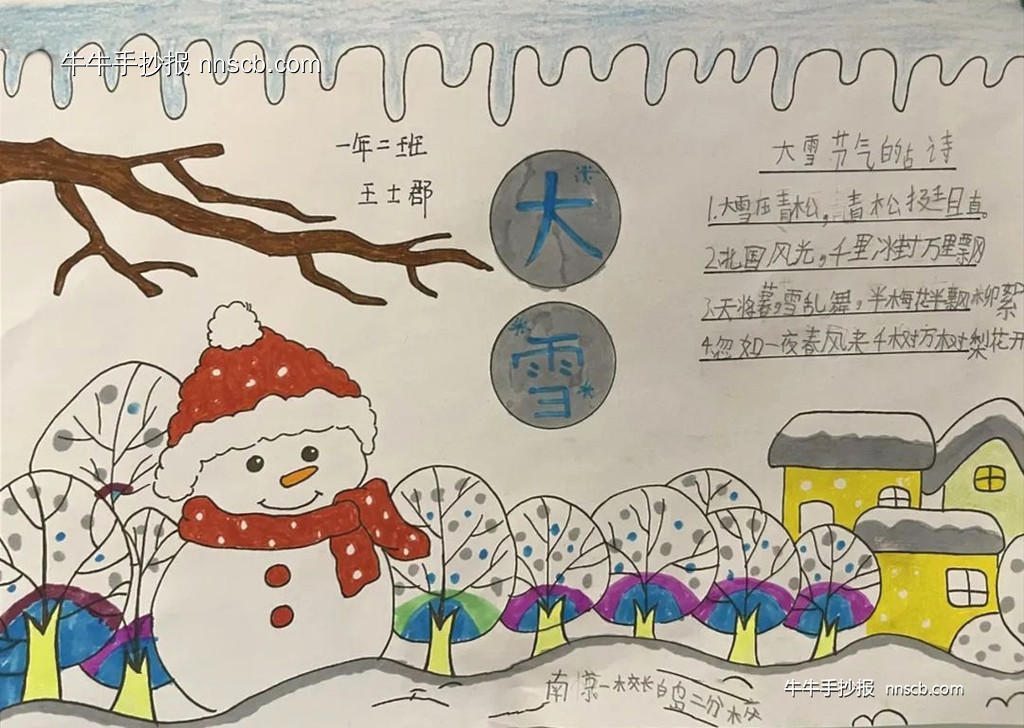 牛牛手抄报 nnscb.com
一年二班
王士郡
大
雪
大雪节气的古诗
1.大雪压青松,青松挺且直。
2.北国风光,千里冰封万里飘
3.天将暮,雪乱舞,半梅花半飘柳絮
4.忽如一夜春风来千树万树梨花开
南 一 白 二分校
牛牛手抄报 nnscb.com